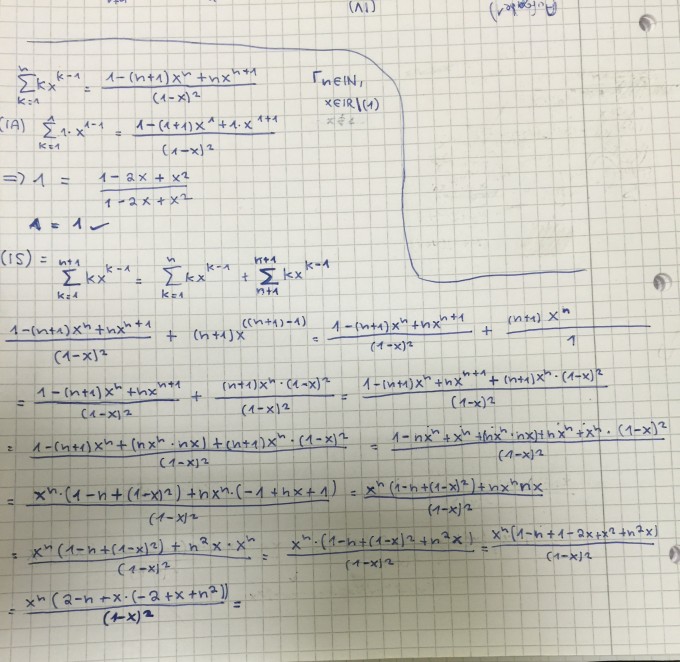 (IV) Aufgabe 1)
n∑k=1 kx^(k-1) = (1-(n+1)x^n+nx^(n+1))/(1-x)² n∈IN, x∈IR\(1)
(IA) 1∑k=1 1·x^(1-1) = (1-(1+1)x^1+1·x^(1+1))/(1-x)²
=> 1 = (1-2x+x²)/(1-2x+x²)
1 = 1 ✓
(IS) = n+1∑k=1 kx^(k-1) = n∑k=1 kx^(k-1) + n+1∑n+1 kx^(k-1)
(1-(n+1)x^n+nx^(n+1))/(1-x)² + (n+1)x^((n+1)-1) = (1-(n+1)x^n+nx^(n+1))/(1-x)² + ((n+1)x^n)/1
= (1-(n+1)x^n+nx^(n+1))/(1-x)² + ((n+1)x^n·(1-x)²)/(1-x)² = (1-(n+1)x^n+nx^(n+1)+(n+1)x^n·(1-x)²)/(1-x)²
= (1-(n+1)x^n+(nx^n·nx)+(n+1)x^n·(1-x)²)/(1-x)² = (1-nx^n+x^n+(nx^n·nx)+nx^n+x^n·(1-x)²)/(1-x)²
= (x^n·(1-n+(1-x)²)+nx^n·(-1+nx+1))/(1-x)² = (x^n(1-n+(1-x)²)+nx^n nx)/(1-x)²
= (x^n(1-n+(1-x)²)+n²x·x^n)/(1-x)² = (x^n·(1-n+(1-x)²+n²x))/(1-x)² = (x^n(1-n+1-2x+x²+n²x))/(1-x)²
= (x^n(2-n+x·(-2+x+n²)))/(1-x)² =